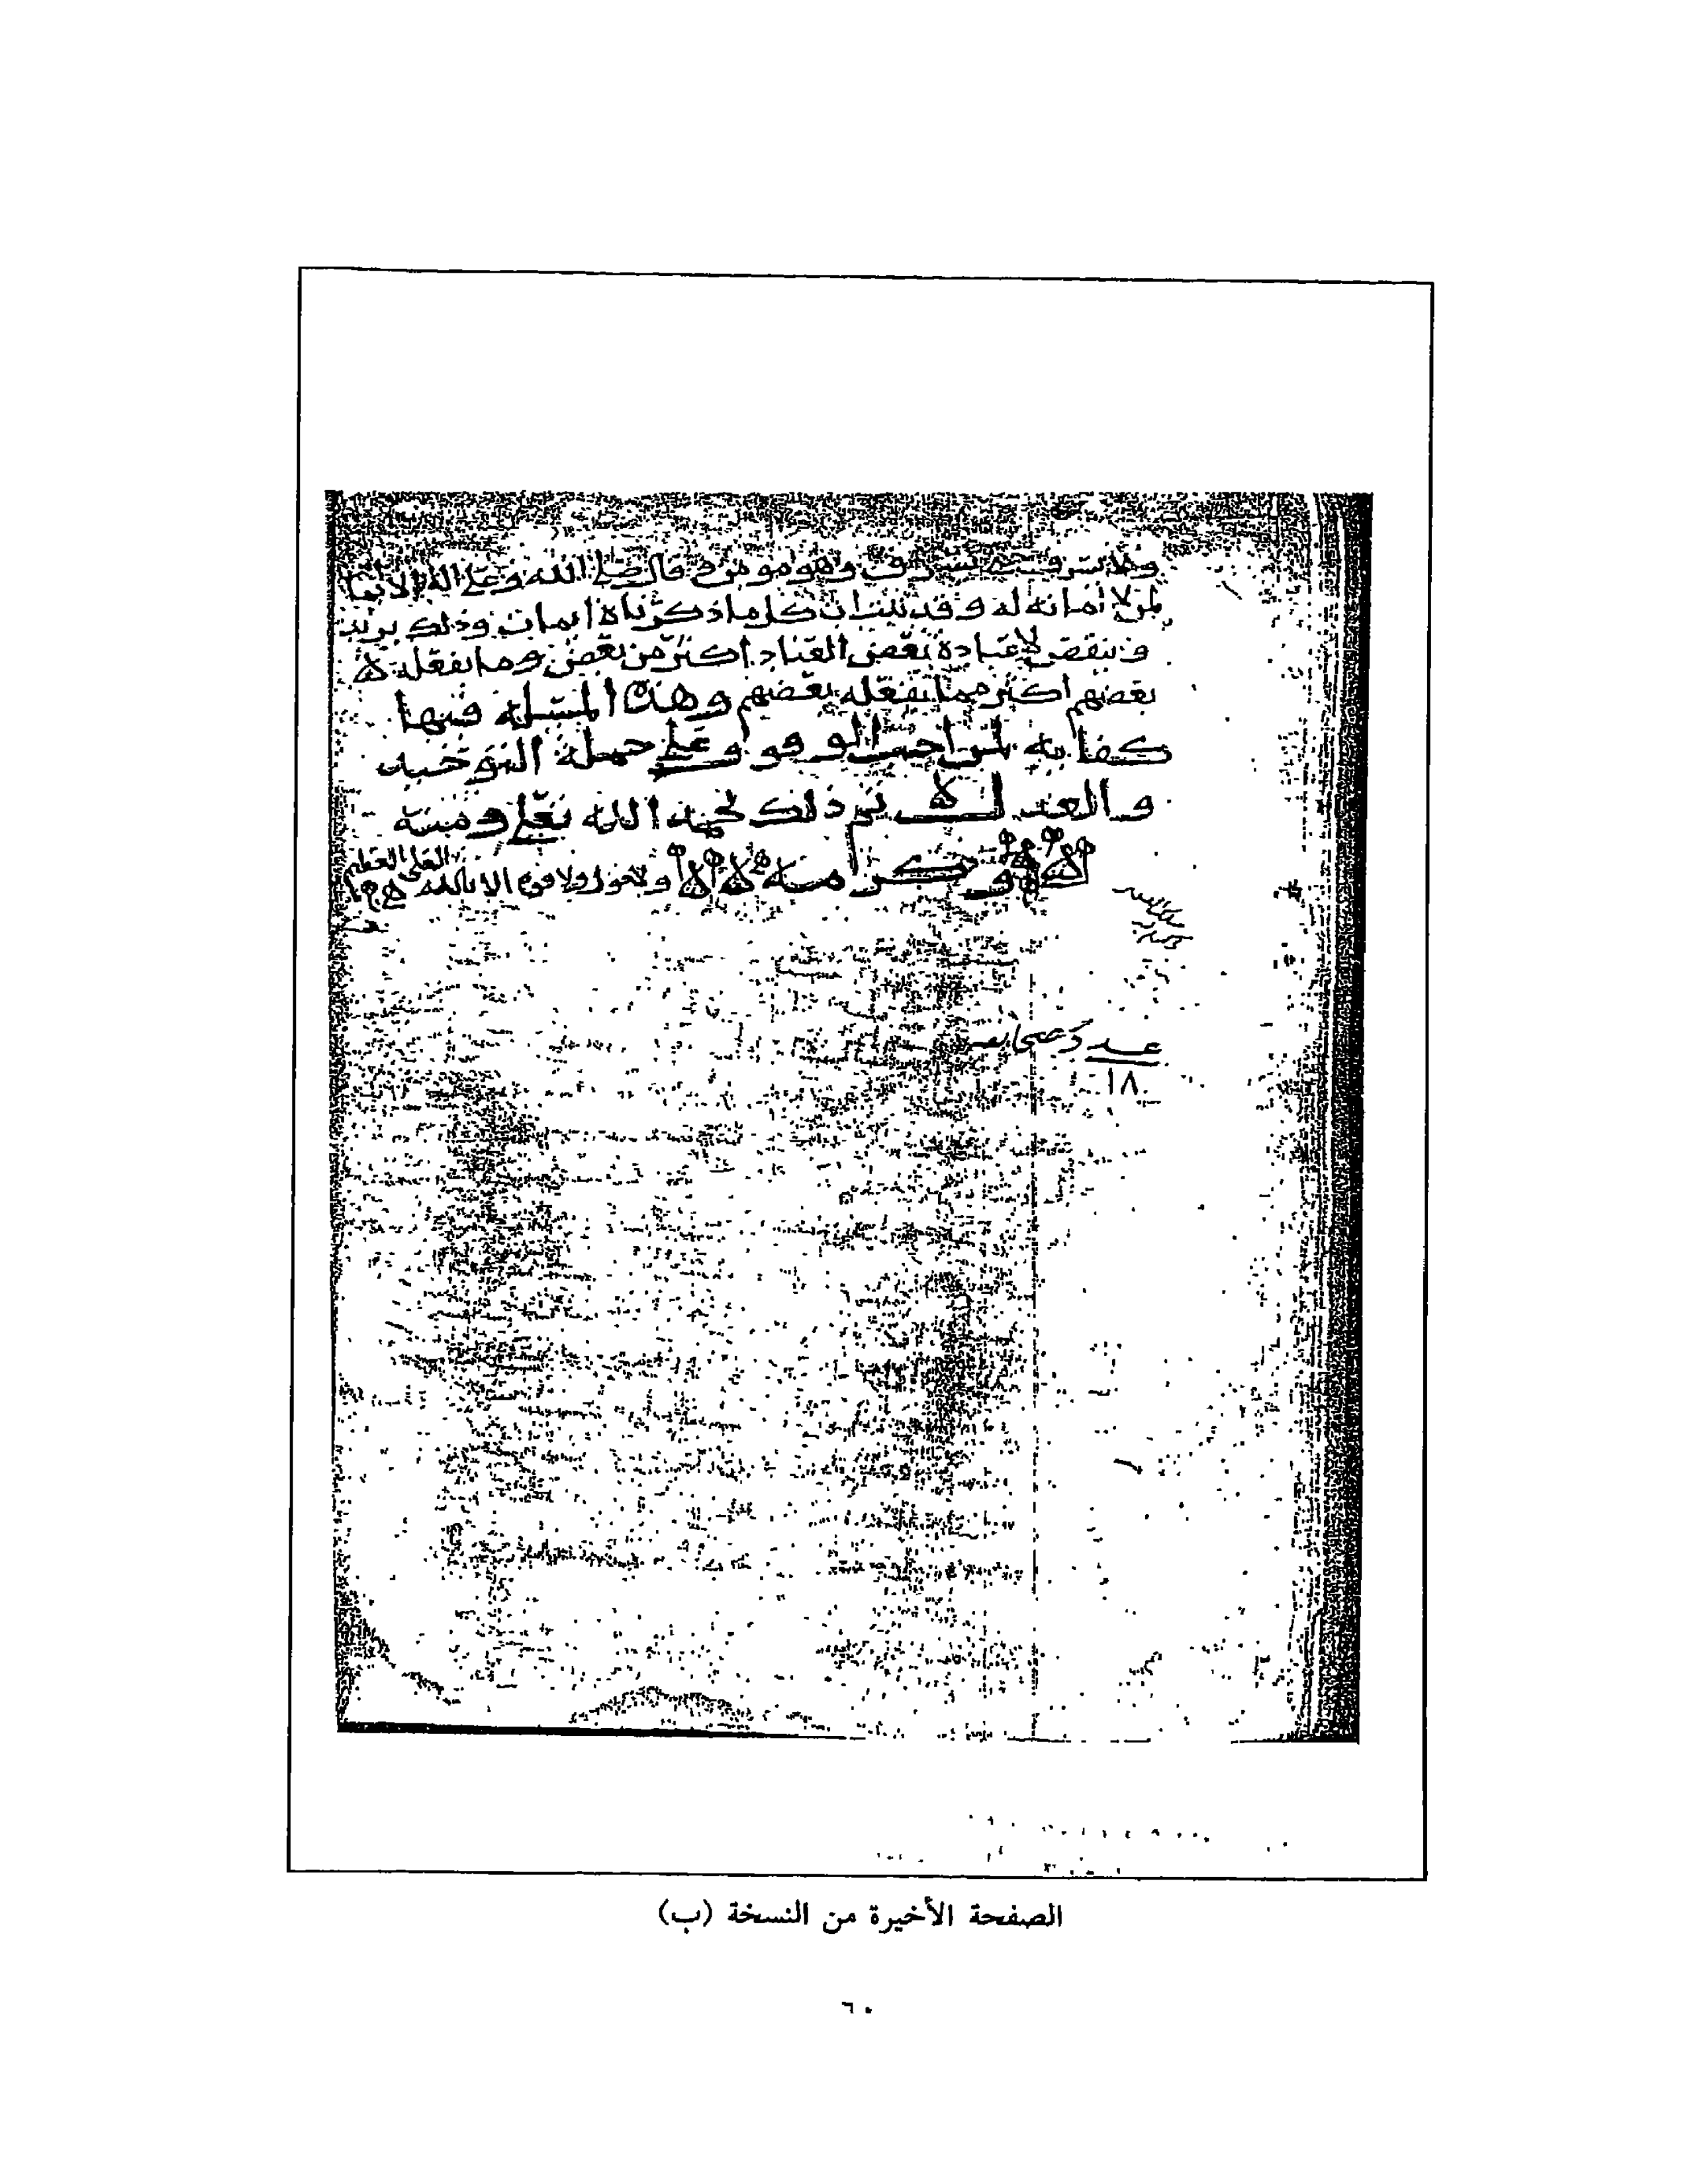 ولا يسرق حين يسرق وهو مومن وقال صلى الله وعلى اله لا ايمان
لمن لا أمانه له وقد بينا ان كل ما ذكرناه ايمان وذلك يزيد
وينقص لا عبادة بعض العباد اكثر من بعض وما يفعله
بعضهم اكثر مما يفعله بعضهم وهذه المسلة فيها
كفايه لمن احب الوقوف على جملة التوحيد
والعدل تم ذلك بحمد الله تعلى ومنه
وكرامته ولا حول ولا قوه الا بالله العلي العظيم
١٨
الصفحة الأخيرة من النسخة (ب)
٦٠